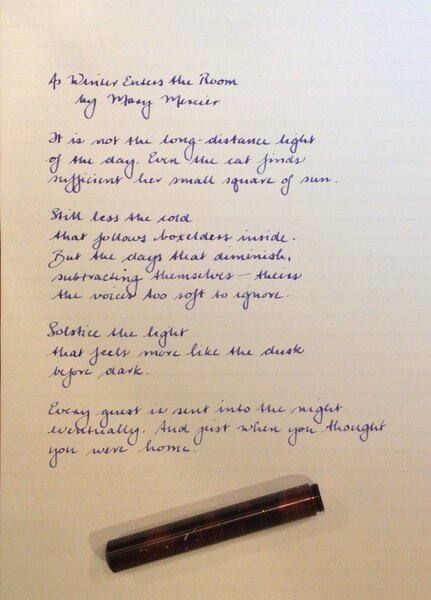 As Winter Enters the Room
by Mary Mercier
It is not the long-distance light
of the day. Even the cat finds
sufficient her small square of sun.
Still less the cold
that follows boxelders inside.
But the days that diminish,
subtracting themselves – theirs
the voices too soft to ignore.
Solstice the light
that feels more like the dusk
before dark.
Every guest is sent into the night
eventually. And just when you thought
you were home.